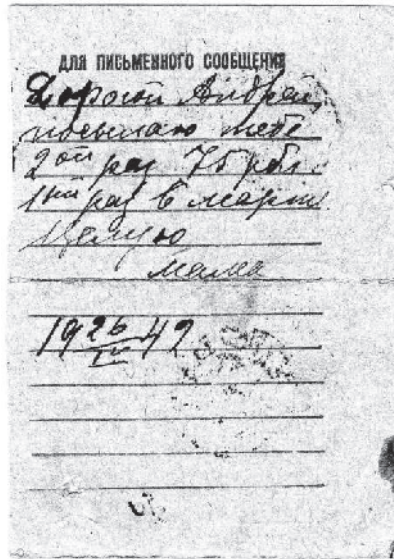 ДЛЯ ПИСЬМЕННОГО СООБЩЕНИЯ
Дорогой Андрей,
посылаю тебе
2ой раз 75 рбл.
1ый раз в марте
Целую
мама
19 26/IV 49